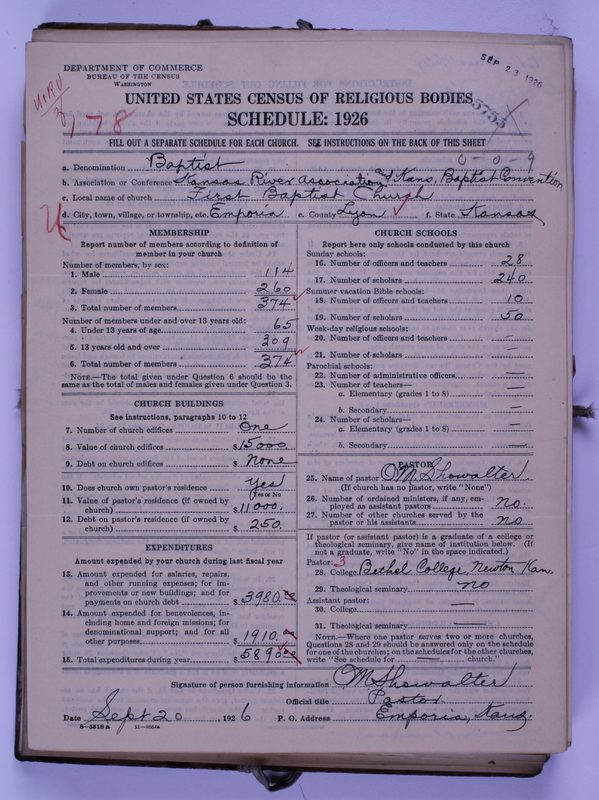 DEPARTMENT OF COMMERCE
BUREAU OF THE CENSUS
WASHINGTON
SEP 23 1926
178
5753
UNITED STATES CENSUS OF RELIGIOUS BODIES
SCHEDULE: 1926
FILL OUT A SEPARATE SCHEDULE FOR EACH CHURCH. SEE INSTRUCTIONS ON THE BACK OF THIS SHEET
0-0-9
a. Denomination Baptist
b. Association or Conference Kansas River Association and Kans. Baptist Convention
c. Local name of church First Baptist Church
d. City, town, village, or township, etc. Emporia e. County Lyon f. State Kansas
MEMBERSHIP
Report number of members according to definition of
member in your church
Number of members, by sex:
1. Male 114
2. Female 260
3. Total number of members 374
Number of members under and over 13 years old:
4. Under 13 years of age 65
5. 13 years old and over 309
6. Total number of members 374
NOTE.—The total given under Question 6 should be the
same as the total of males and females given under Question 3.
CHURCH BUILDINGS
See instructions, paragraphs 10 to 12
7. Number of church edifices One
8. Value of church edifices $15000.
9. Debt on church edifices $ None
10. Does church own pastor's residence Yes
(Yes or No
11. Value of pastor's residence (if owned by
church) $11000.
12. Debt on pastor's residence (if owned by
church) $ 250.
EXPENDITURES
Amount expended by your church during last fiscal year
13. Amount expended for salaries, repairs,
and other running expenses; for im-
provements or new building; and for
payments on church debt $3980.00
14. Amount expended for benevolences, in-
cluding home and foreign missions; for
denominational support; and for all
other purposes $1910.00
15. Total expenditures during year $5890.00
CHURCH SCHOOLS
Report here only schools conducted by this church
Sunday schools:
16. Number of officers and teachers 28
17. Number of scholars 240
Summer vacation Bible schools:
18. Number of officers and teachers 10
19. Number of scholars 50
Week-day religious schools:
20. Number of officers and teachers —
21. Number of scholars —
Parochial schools:
22. Number of administrative officers —
23. Number of teachers—
a. Elementary (grades 1 to 8) —
b. Secondary —
24. Number of scholars—
a. Elementary (grades 1 to 8) —
b. Secondary —
PASTOR
25. Name of pastor O M Showalter.
(If church has no pastor, write "None")
26. Number of ordained ministers, if any, em-
ployed as assistant pastors no.
27. Number of other churches served by the
pastor or his assistants no
If pastor (or assistant pastor) is a graduate of a college or
theological seminary, give name of institution below. (If
not a graduate, write "No" in the space indicated.)
Pastor: 3
28. College Bethel College, Newton Kan.
29. Theological seminary no
Assistant pastor:
30. College —
31. Theological seminary —
NOTE.—Where one pastor serves two or more churches,
Questions 28 and 29 should be answered only on the schedule
for one of the churches; on the schedules for the other churches,
write "See schedule for — church."
Signature of person furnishing information O M Showalter
Official title Pastor
Date Sept 20, 1926 P. O. Address Emporia, Kans.